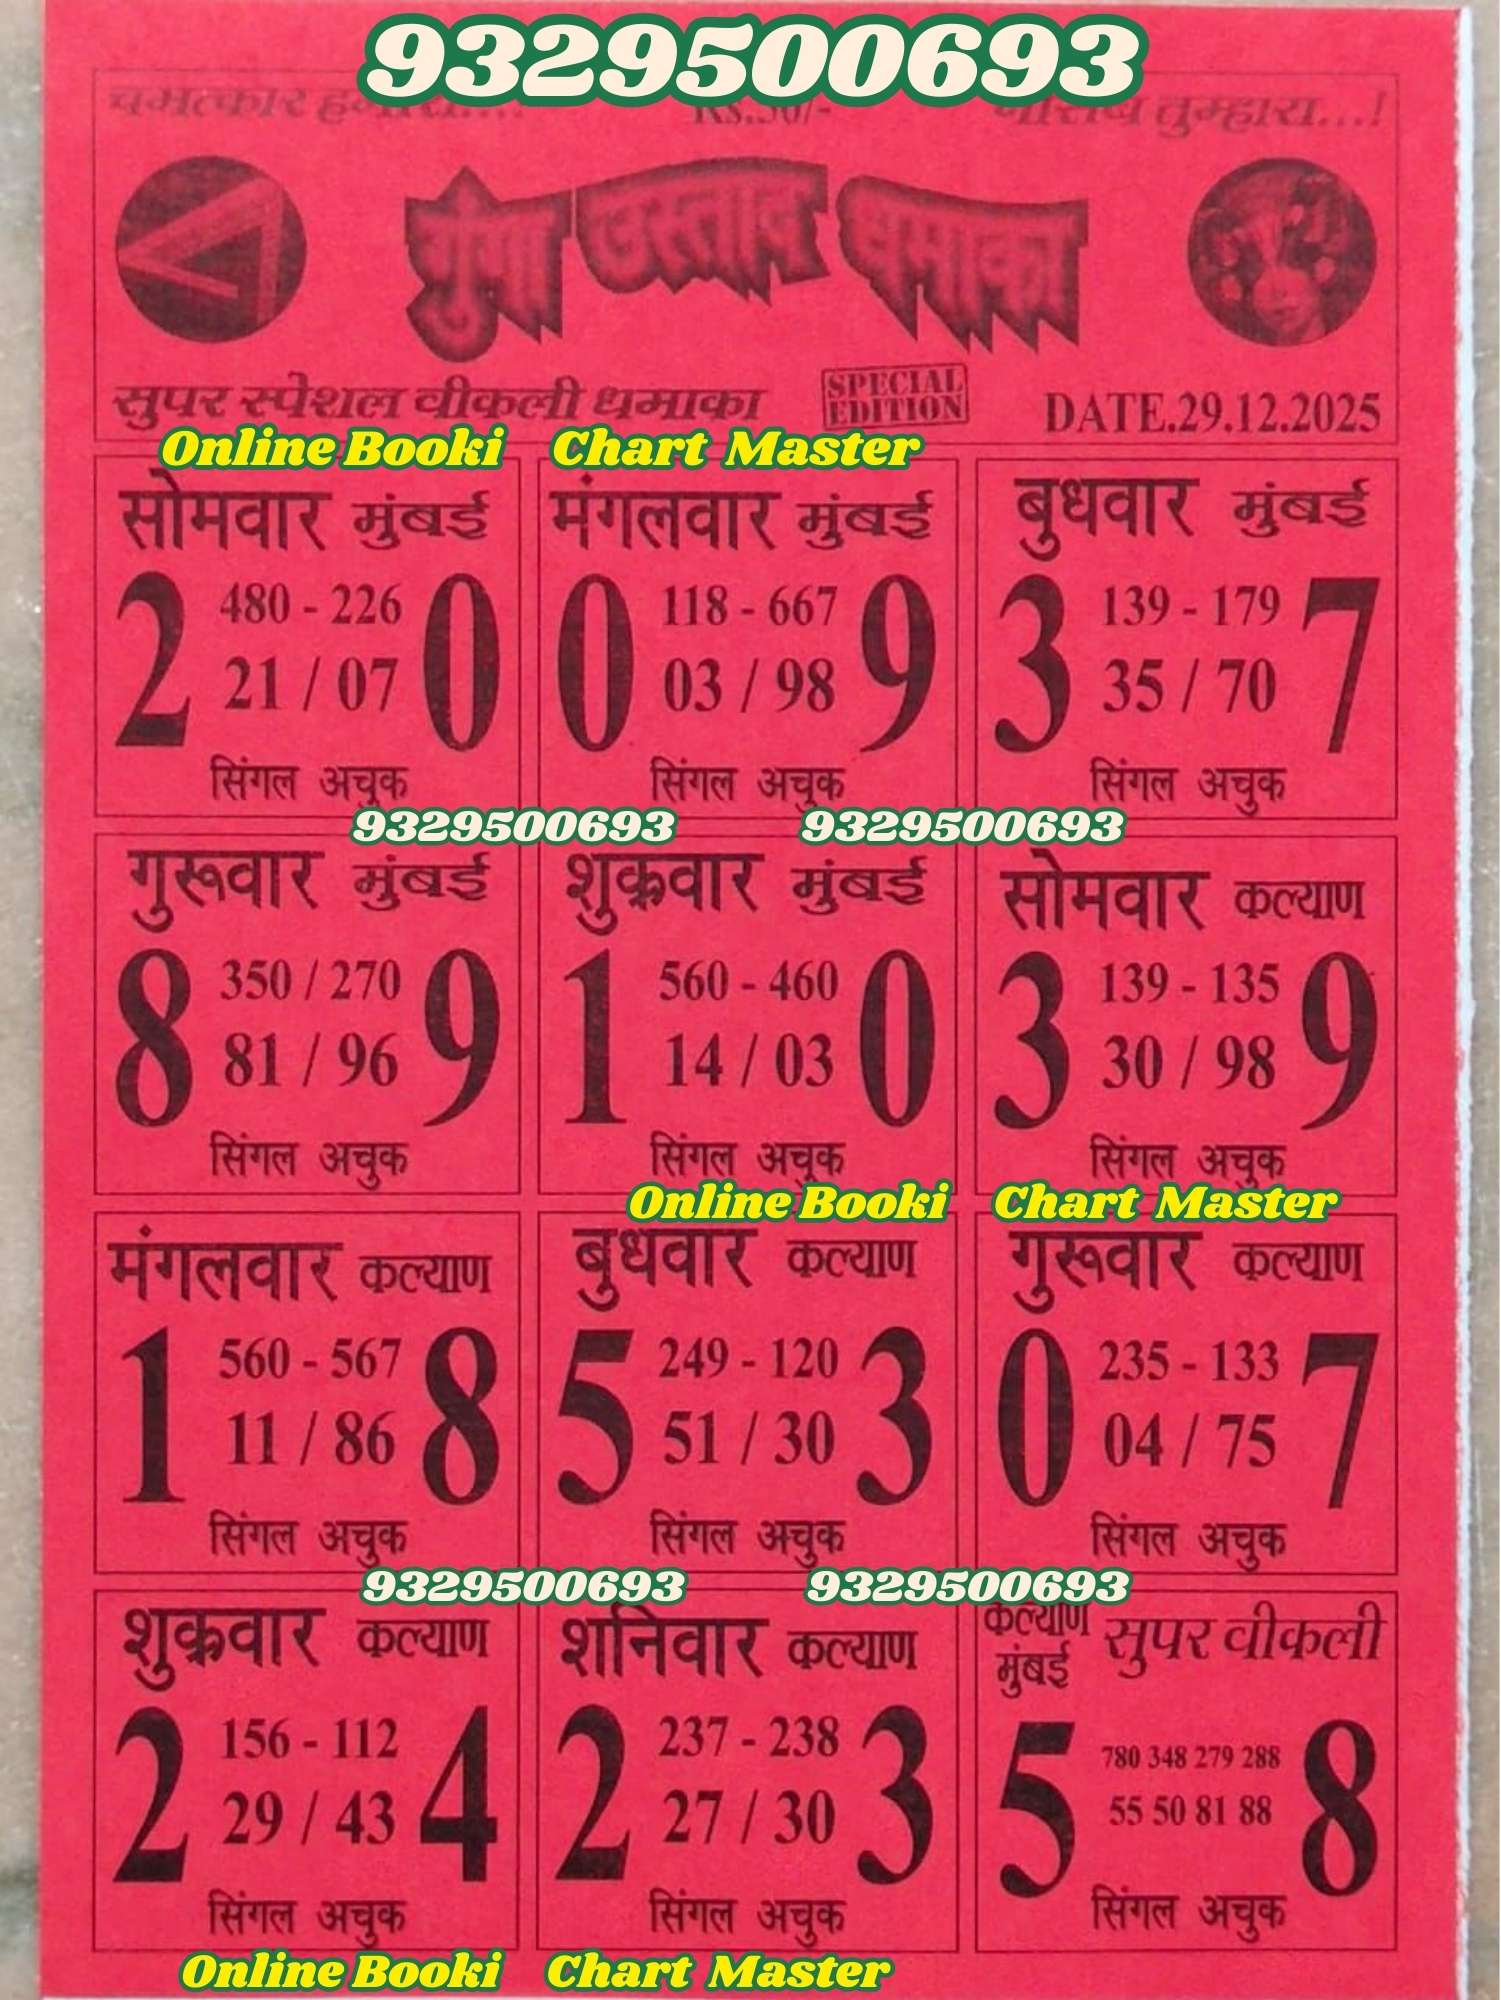 9329500693
चमत्कार हमारा.... Rs.50/- नसिब तुम्हारा...!
गुंगा उस्ताद धमाका
सुपर स्पेशल वीकली धमाका SPECIAL EDITION DATE.29.12.2025
Online Booki Chart Master
सोमवार मुंबई
2 480 - 226 0
21 / 07
सिंगल अचुक
मंगलवार मुंबई
0 118 - 667 9
03 / 98
सिंगल अचुक
बुधवार मुंबई
3 139 - 179 7
35 / 70
सिंगल अचुक
9329500693 9329500693
गुरूवार मुंबई
8 350 / 270 9
81 / 96
सिंगल अचुक
शुक्रवार मुंबई
1 560 - 460 0
14 / 03
सिंगल अचुक
सोमवार कल्याण
3 139 - 135 9
30 / 98
सिंगल अचुक
Online Booki Chart Master
मंगलवार कल्याण
1 560 - 567 8
11 / 86
सिंगल अचुक
बुधवार कल्याण
5 249 - 120 3
51 / 30
सिंगल अचुक
गुरूवार कल्याण
0 235 - 133 7
04 / 75
सिंगल अचुक
9329500693 9329500693
शुक्रवार कल्याण
2 156 - 112 4
29 / 43
सिंगल अचुक
शनिवार कल्याण
2 237 - 238 3
27 / 30
सिंगल अचुक
कल्याण मुंबई सुपर वीकली
5 780 348 279 288 8
55 50 81 88
सिंगल अचुक
Online Booki Chart Master